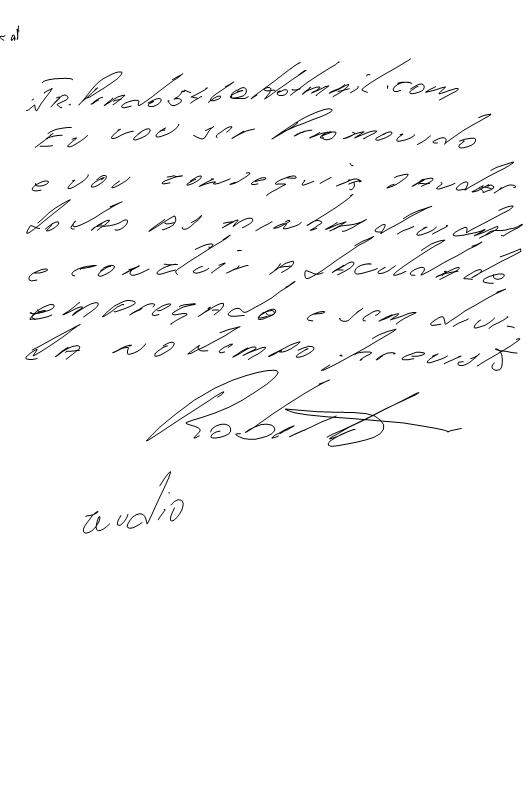 at
Jr.Prado546@Hotmail.com
Eu vou ser Promovido
e vou conseguir saudar
todas as minhas dividas
e concluir a faculdade
empregado e sem divi-
da no tempo previsto
Roberto
audio